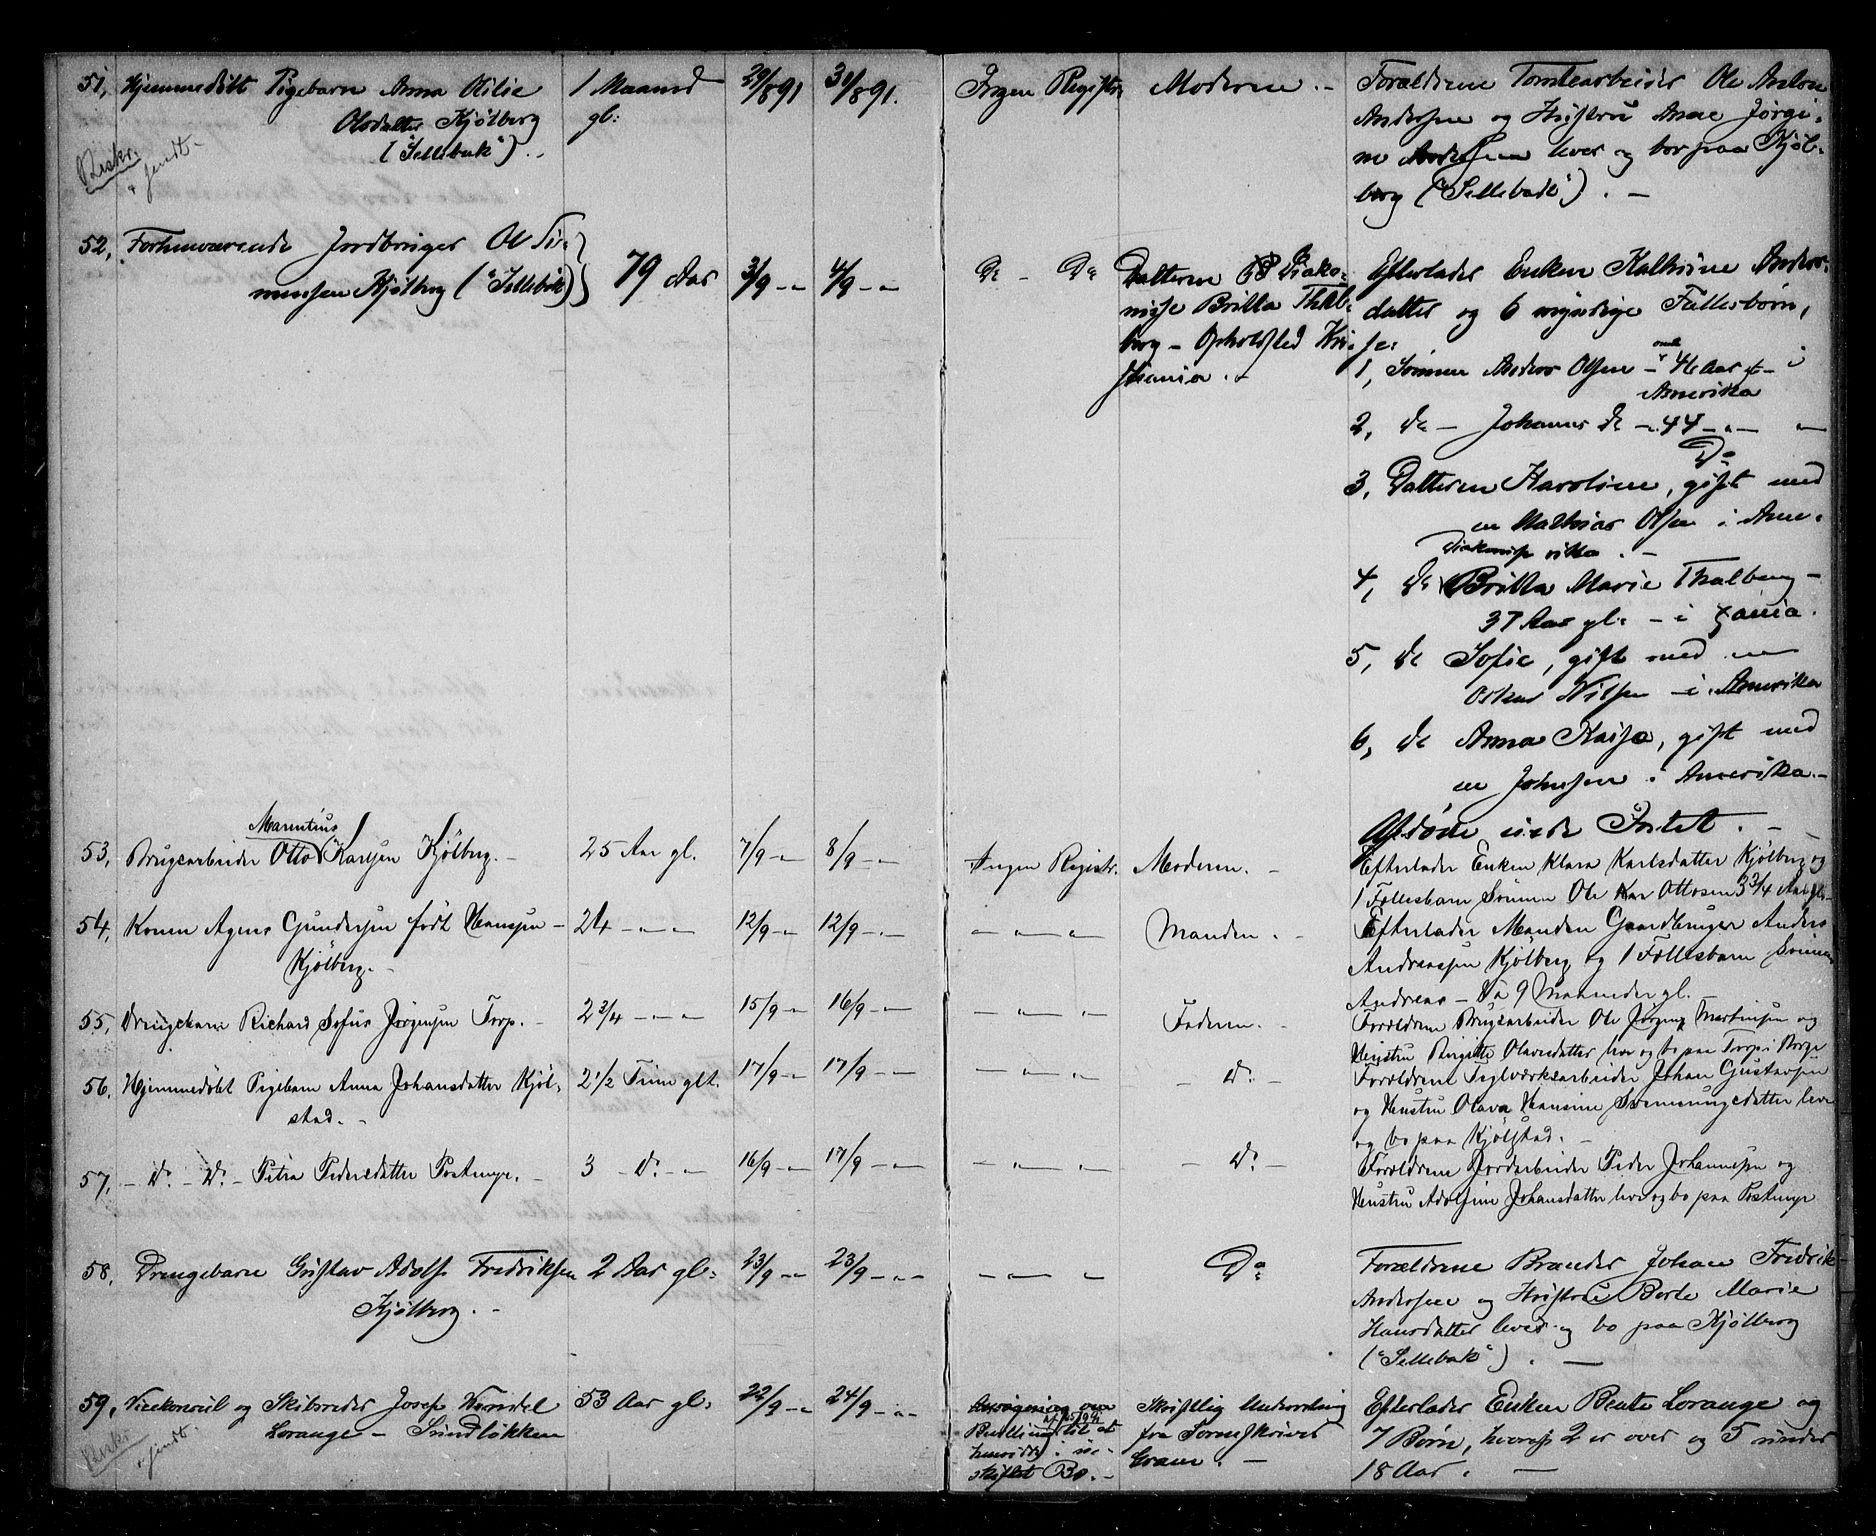 51, Hjemmedøbt Pigebarn Anna Otilie
Olsdatter Kjølberg
("Sellebak").
1 Maaned
gl:
29/8 91
31/8 91.
Ingen Registr.
Moderen.
Forældrene Tomtearbeider Ole Anton
Andersen og Hustru Anne Jørgi-
ne Andersen lever og bor paa Kjøl-
berg ("Sellebak").
52, Forhenværende Jordbruger Ole Si-
mensen Kjølberg ("Sellebak")
79 Aar
3/9 - "
4/9 - "
Do - Do
Datteren Diako-
nisse Britta Thal-
berg - Opholdssted Kri-
stiania.
Efterlader Enken Kathrine Anders-
datter og 6 myndige Fællesbørn,
1, Sønnen Anders Olsen - omtr 46 Aar gl - i
Amerika
2, do - Johannes do - 44 - " -
Do
3, Datteren Karoline, gift med
en Mathias Olsen i Ame-
rika.
4, do Diakonisse Britta Marie Thalberg -
37 Aar gl. - i Xania.
5, do Sofie, gift med en
Oskar Nilsen - i Amerika
6, do Anna Kaisa, gift med
en Johnsen i Amerika.
Afdøde nede Fostet.
53, Brugsarbeider Otto Marentius Karlsen Kjølberg.
25 Aar gl.
7/9 - "
8/9 - "
Ingen Registr.
Moderen.
Efterlader Enken Klara Karlsdatter Kjølberg og
1 Fællesbarn Sønnen Ole Kar Ottosen 3 3/4 Aar gl.
54, Konen Agnes Gundersen født Hansen -
Kjølberg.
24 - " -
12/9 - "
12/9 - "
- " -
Manden.
Efterlader Manden Gaardbruger Anders
Andreassen Kjølberg og 1 Fællesbarn Sønnen
Andreas - 8 a 9 Maaneder gl.
55, Drengebarn Richard Sofus Jørgensen Torp.
2 3/4 - " -
15/9 - "
16/9 - "
- " -
Faderen.
Forældrene Brugsarbeider Ole Jørgen Martinsen og
Hustru Birgitte Olavesdatter leve og bo paa Torp i Borge
56, Hjemmedøbt Pigebarn Anna Johansdatter Kjøl-
stad.
2 1/2 Time glt.
17/9 - "
17/9 - "
- " -
- Do -
Forældrene Teglværksarbeider Johan Gustavsen
og Hustru Olava Hansine Svenningsdatter leve
og bo paa Kjølstad.
57, - Do - Do - Petra Pedersdatter Postmyr.
3 - Do -
16/9 - "
17/9 - "
- " -
- Do -
Forældrene Jordarbeider Peder Johannesen og
Hustru Adolfine Johansdatter leve og bo paa Postmyr
58, Drengebarn Gustav Adolf Fredriksen
Kjølberg.
2 Aar gl:
23/9 - "
23/9 - "
- " -
Do
Forældrene Brænder Johan Fredrik
Andersen og Hustru Berte Marie
Hansdatter lever og bo paa Kjølberg
("Sellebak").
59, Visekonsul og Skibsreder Josef Wendel
Lorange - Sundløkken
53 Aar gl:
22/9 - "
24/9 - "
Bevilling til at
hensidde i u-
skiftet Bo.
Skriftlig Underretning
fra Sorenskriver
Gram.
Efterlader Enken Beate Lorange og
7 Børn, hvoraf 2 er over og 5 under
18 Aar.